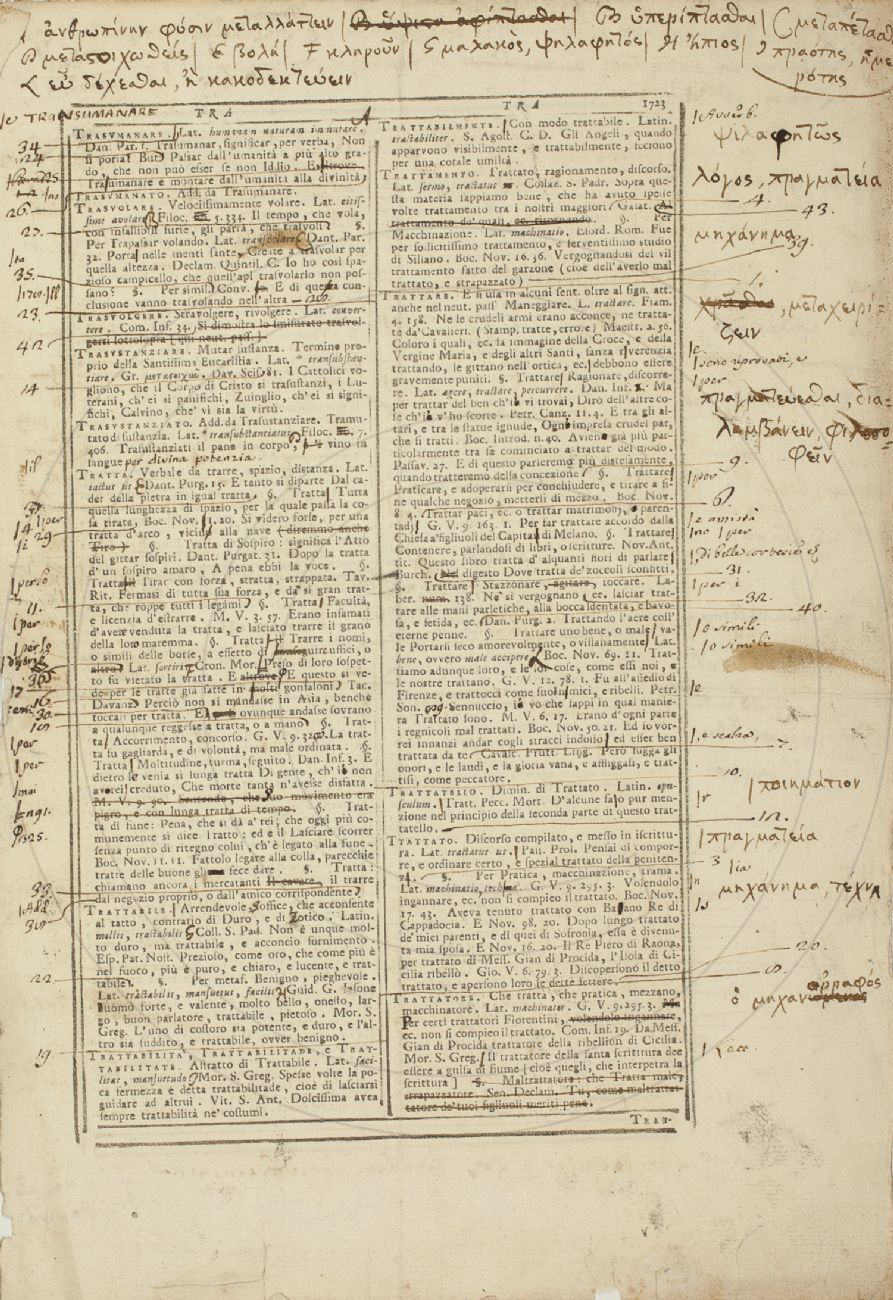 ἀνθρωπίνην φύσιν μεταλλάττειν ὑπερίπτασθαι
βολά κληροῦν μαλακὸς, ψηλαφητός ἤπιος πραότης, ἡμε
ρότης
TRANSUMANARE
TRA TRA 1723
TRASUMANARE. Lat. humanam naturam immutare.
Dan. Par. 1. Trasumanar, significar, per verba, Non
si poria. But. Passar dall'umanità a più alto gra-
do, che non può esser se non Iddio. E altrove
Trasumanare è montare dall'umanità alla divinità,
TRASUMANATO. Add. da Trasumanare.
TRASVOLARE. Velocissimamente volare. Lat.
Filoc. 5. 334. Il tempo, che vola,
con infallibili furie, gli paria, che trasvoli. §.
Per Trapassar volando. Lat. Dant. Par.
32. Porta nelle menti sante, Create a trasvolar per
quella altezza. Declam. Quintil. C. Io ho così spa-
zioso campicello, che quell'api trasvolarlo non pos-
sano? §. Per simil. E di questa con-
clusione vanno trasvolando nell'altra
TRASVOLGERE. Stravolgere, rivolgere. Lat. conver-
tere. Com. Inf. 34. Si dimostra lo smisurato trasvol-
gersi sottosopra [qui neut. pass.]
TRASUSTANZIARE. Mutar sustanza. Termine pro-
prio della Santissima Eucaristia. Lat. transubstan-
tiare. Gr. Dav. Scis. 81. I Cattolici vo-
gliono, che il Corpo di Cristo si trasustanzi, i Lu-
terani, ch'ei si panifichi, Zuinglio, ch'ei si signi-
fichi, Calvino, che' vi sia la virtù.
TRASUSTANZIATO. Add. da Trasustanziare. Tramu-
tato di sustanzia. Lat. transubstantiatus. Filoc. 7.
406. Trasustanziati il pane in corpo, vino in
sangue per divina potenzia.
TRATTA. Verbale da trarre, spazio, distanza. Lat.
iactus us. Dant. Purg. 15. E tanto si diparte Dal ca-
der della pietra in igual tratta. §. Tratta Tutta
quella lunghezza di spazio, per la quale passa la co-
sa tirata, Boc. Nov. 1. 20. Si videro forse, per una
tratta d'arco, vicini alla nave (diremmo anche
Tiro) §. Tratta di Sospiro: significa l'Atto
del gittar sospiri. Dant. Purgat. 31. Dopo la tratta
d'un sospiro amaro, A pena ebbi la voce. §.
Tratta Tirar con forza, stratta, strappata. Tav.
Rit. Fermasi di tutta sua forza, e dà sì gran trat-
ta, che roppe tutti i legami. §. Tratta Facultà,
e licenzia d'estrarre. M. V. 3. 57. Erano infamati
d'aver venduta la tratta, e lasciato trarre il grano
della loro maremma. §. Tratta Trarre i nomi,
o simili delle borse, a effetto di uffici, o
altro. Lat. sortitio. Cron. Mor. Preso di loro sospet-
to fu vietato la tratta. E altrove E questo si ve-
de per le tratte già fatte in molti gonfaloni. Tac.
Davanz. Perciò non si mandasse in Asia, benchè
toccali per tratta. E ovunque andasse sovrano
a qualunque reggesse a tratta, o a mano. §. Trat-
ta Accorrimento, concorso. G. V. 9. La trat-
ta fu gagliarda, e di volontà, ma male ordinata. §.
Tratta Moltitudine, turma, seguito. Dan. Inf. 3. E
dietro le venia sì lunga tratta Di gente, ch'io non
avrei creduto, Che morte tanta n'avesse disfatta.
M. V. 9. 90. Sentendo, che suo movimento era
pigro, e con lunga tratta di tempo. §. Trat-
ta di fune: Pena, che si dà a' rei; che oggi più co-
munemente si dice Tratto: ed è il Lasciare scorrer
senza punto di ritegno colui, ch'è legato alla fune.
Boc. Nov. 11. 11. Fattolo legare alla colla, parecchie
tratte delle buone gli fece dare. §. Tratta:
chiamano ancora i mercatanti il trarre
dal negozio proprio, o dall'amico corrispondente
TRATTABILE. Arrendevole, soffice, che acconsente
al tatto, contrario di Duro, e di Zotico. Latin.
mollis, tractabilis. Coll. S. Pad. Non è unque mol-
to duro, ma trattabile, e acconcio fornimento.
Esp. Pat. Nost. Prezioso, come oro, che come più è
nel fuoco, più è puro, e chiaro, e lucente, e trat-
tabile. §. Per metaf. Benigno, pieghevole.
Lat. tractabilis, mansuetus, facilis. Guid. G. Iasone
uomo forte, e valente, molto bello, onesto, lar-
go, buon parlatore, trattabile, pietoso. Mor. S.
Greg. L'uno di costoro sia potente, e duro, e l'al-
tro sia suddito, e trattabile, ovver benigno.
TRATTABILITÀ, TRATTABILITADE, e TRAT-
TABILITATE. Astratto di Trattabile. Lat. faci-
litas, mansuetudo. Mor. S. Greg. Spesse volte la po-
ca fermezza è detta trattabilitade, cioè di lasciarsi
guidare ad altrui. Vit. S. Ant. Dolcissima avea
sempre trattabilità ne' costumi.
TRATTABILMENTE. Con modo trattabile. Latin.
tractabiliter. S. Agost. C. D. Gli Angeli, quando
apparvono visibilmente, e trattabilmente, feciono
per una cotale umiltà.
TRATTAMENTO. Trattato, ragionamento, discorso.
Lat. sermo, tractatus. Collaz. S. Padr. Sopra que-
sta materia sappiamo bene, che ha avuto spesse
volte trattamento tra i nostri maggiori. Galat. Al
trattamento de' quali, ec. ritornando. §. Per
Macchinazione. Lat. machinatio. Etord. Rom. Fue
per sollicitissimo trattamento, e ferventissimo studio
di Siliano. Boc. Nov. 16. 36. Vergognandosi del vil
trattamento fatto del garzone (cioè dell'averlo mal
trattato, e strapazzato)
TRATTARE. E si usa in alcuni sent. oltre al sign. att.
anche nel neut. pass. Maneggiare. L. tractare. Fiam.
4. 158. Ne le crudeli armi erano acconce, ne tratta-
te da' Cavalieri. (Stamp. tratte, errore) Maestr. 2. 56.
Coloro i quali, ec. la immagine della Croce, e della
Vergine Maria, e degli altri Santi, sanza riverenzia
trattando, le gittano nell'ortica, ec. debbono essere
gravemente puniti. §. Trattare Ragionare, discorre-
re. Lat. agere, tractare, percurrere. Dan. Inf. 1. Ma
per trattar del ben ch'io vi trovai, Dirò dell'altre co-
se ch'io v'ho scorte. Petr. Canz. 11. 4. E tra gli al-
tari, e tra le statue ignude, Ogni impresa crudel par,
che si tratti. Boc. Introd. n. 40. Avieno già più par-
ticolarmente tra se cominciato a trattar del modo.
Passav. 27. E di questo parleremo più distesamente,
quando tratteremo della concezione. §. Trattare
Praticare, e adoperarsi per conchiudere, e tirare a fi-
ne qualche negozio, mettersi di mezzo. Boc. Nov.
8 4. Trattar paci, ec. o trattar matrimonj, o paren-
tadi. G. V. 9. 163. 1. Per far trattare accordo dalla
Chiesa a' figliuoli del Capitan di Melano. §. Trattare
Contenere, parlandosi di libri, o scritture. Nov. Ant.
tit. Questo libro tratta d'alquanti fiori di parlare
Burch. Nel digesto Dove tratta de' zoccoli sconfitti.
§. Trattare Stazzonare, agitare, toccare. La-
ber. num. 138. Ne si vergognano ec. lasciar trat-
tare alle mani parletiche, alla bocca sdentata, e bavo-
sa, e fetida, ec. Dan. Purg. 2. Trattando l'aere coll'
eterne penne. §. Trattare uno bene, o male, va-
le Portarsi seco amorevolmente, o villanamente. Lat.
bene, ovvero male accipere. Boc. Nov. 69. 21. Trat-
tiamo adunque loro, e le lor cose, come essi noi, e
le nostre trattano. G. V. 12. 78. 1. Fu all'assedio di
Firenze, e trattocci come suoi nimici, e ribelli. Petr.
Son. Sennuccio, io vo che sappi in qual manie-
ra Trattato sono. M. V. 6. 17. Erano d'ogni parte
i regnicoli mal trattati. Boc. Nov. 30. 21. Ed io vor-
rei innanzi andar cogli stracci indosso, ed esser ben
trattata da te. Cavalc. Frutt. Ling. Però fugga gli
onori, e le laudi, e la gloria vana, e affliggasi, e trat-
tisi, come peccatore.
TRATTATELLO. Dimin. di Trattato. Latin. opu-
sculum. Tratt. Pecc. Mort. D'alcune fa lo pur men-
zione nel principio della seconda parte di questo trat-
tatello.
TRATTATO. Discorso compilato, e messo in iscrittu-
ra. Lat. tractatus us. Pass. Prol. Pensai di compor-
re, e ordinare certo, e spezial trattato della peniten-
za. §. Per Pratica, macchinazione, trama.
Lat. machinatio, techna. G. V. 9. 295. 3. Volendolo
ingannare, ec. non si compieo il trattato. Boc. Nov.
17. 43. Aveva tenuto trattato con Bassano Re di
Cappadocia. E Nov. 98. 20. Dopo lungo trattato
de' miei parenti, e di quei di Sofronia, essa è divenu-
ta mia sposa. E Nov. 16. 20. Il Re Piero di Raona,
per trattato di Mess. Gian di Procida, l'Isola di Ci-
cilia ribellò. Gio. V. 6. 79. 3. Discopersono il detto
trattato, e apersono loro le dette lettere.
TRATTATORE. Che tratta, che pratica, mezzano,
macchinatore. Lat. machinator. G. V. 9. 295. 3.
Per certi trattatori Fiorentini, volendolo ingannare,
ec. non si compieo il trattato. Com. Inf. 19. Da Mess.
Gian di Procida trattatore della ribellion di Cicilia.
Mor. S. Greg. Il trattatore della santa scrittura dee
essere a guisa di fiume [cioè quegli, che interpetra la
scrittura] §. Maltrattatore: che Tratta male,
strapazzatore. Sen. Declam. Tu, come maltrattat-
tatore de' tuoi figliuoli meriti pena.
TRAT-
34
24
26.
27.
35.
23.
42
14
29
11.
17
30.
22
19.
λόγος, πραγματεία
4.
43.
μηχάνημα
39.
μεταχειρί-
ζειν
λαμβάνειν
9.
6.
31.
32.
40.
7.
10.
ποιημάτιον
12.
πραγματεία
3
μηχάνημα, τέχνη
20.